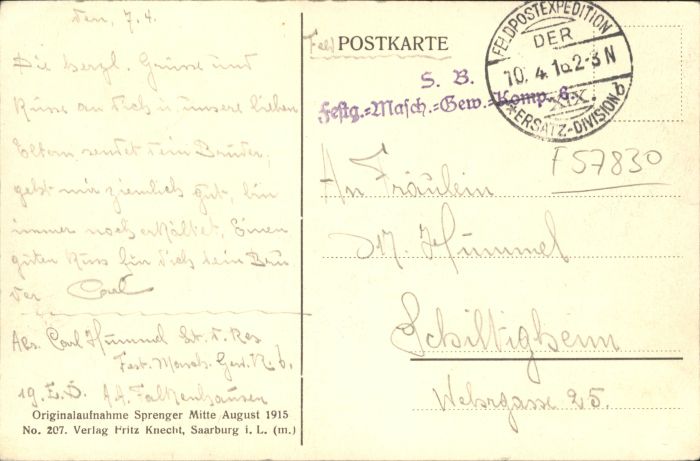 den, 7.4.
Die herzl. Grüsse und
Küsse an dich u unsere lieben
Eltern sendet dein Bruder,
geht mir ziemlich gut, bin
immer noch erkältet. Einen
guten Kuss für dich dein Bru
der Carl
Abs. Carl Hummel
Fest. Masch. Gew. K. 6.
19. E. D. A.A. Falkenhausen
Originalaufnahme Sprenger Mitte August 1915
No. 207. Verlag Fritz Knecht, Saarburg i. L. (m.)
Feld POSTKARTE
S. B.
Festg.=Masch.=Gew.=Komp. 6.
FELDPOSTEXPEDITION
DER
10. 4. 16. 2-3 N
XIX.
*ERSATZ-DIVISION b
F57830
An Fräulein
M. Hummel
Schiltigheim
Wehrgasse 25.